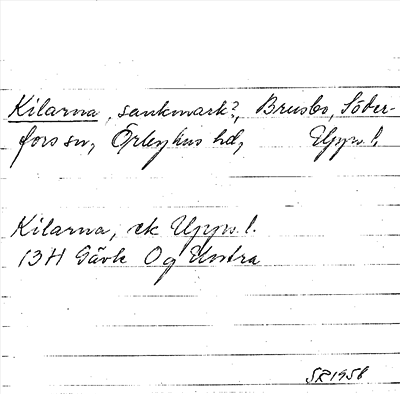 Kilarna, sankmark?, Brusbo, Söder-
fors sn, Örbyhus hd, Upps. l.
Kilarna, ek Upps. l.
13H Gävle Og Untra
SR 1958